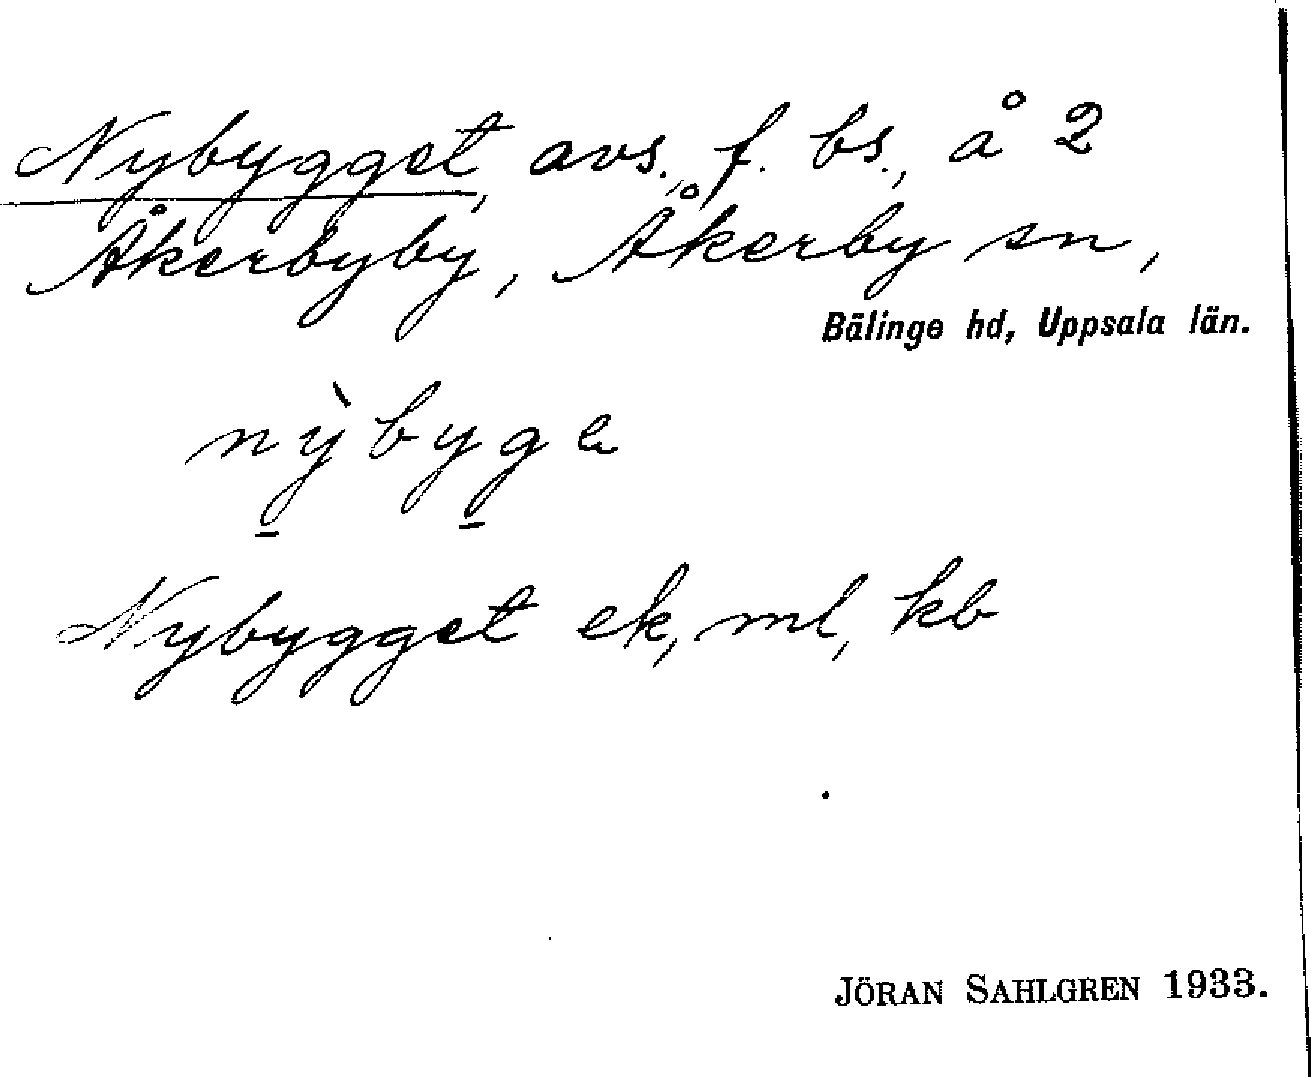 Nybygget, avs., f. bs., å 2
Åkerbyby, Åkerby sn,
Bälinge hd, Uppsala län.
nỳbyge
Nybygget ek, ml, kb
JÖRAN SAHLGREN 1933.